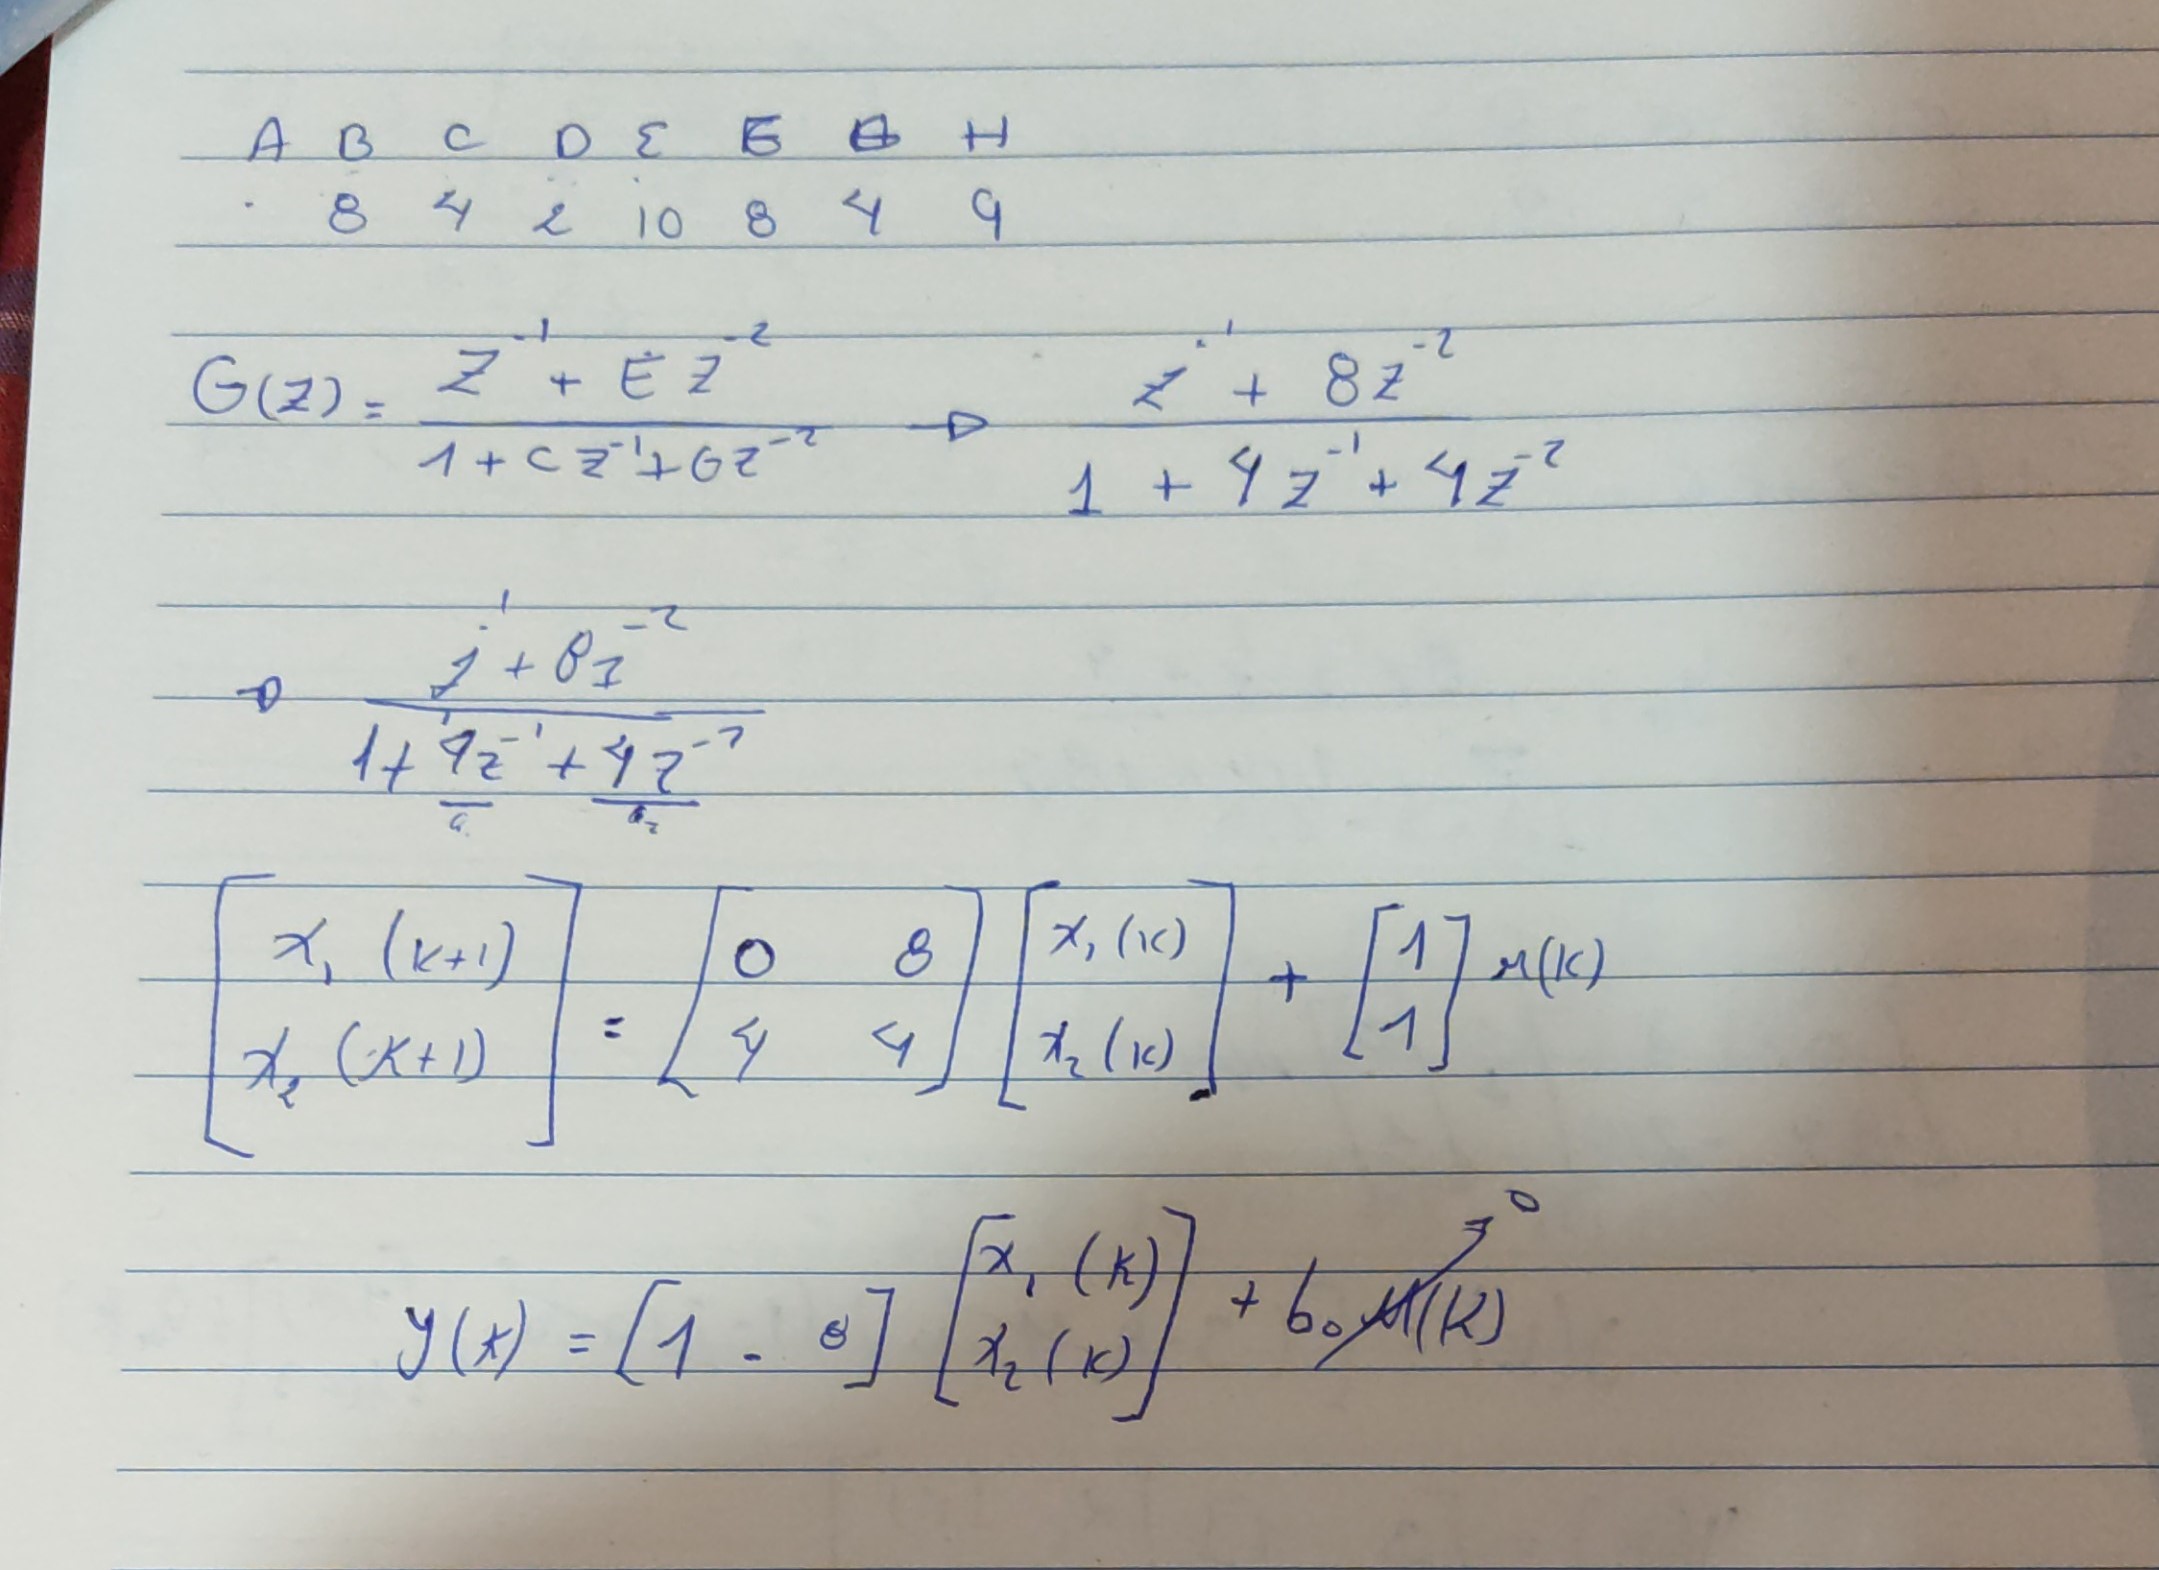 A B C D Ɛ E G H
. 8 4 2 10 8 4 9
G(Z) = (Z^-1 + E Z^-2) / (1 + C Z^-1 + G Z^-2) → (Z^-1 + 8 Z^-2) / (1 + 4 Z^-1 + 4 Z^-2)
→ (z^-1 + 8 z^-2) / (1 + 4 z^-1 + 4 z^-2)
a₁ a₂
[x₁ (k+1) ; x₂ (k+1)] = [0 8 ; 4 4] [x₁ (k) ; x₂ (k)] + [1 ; 1] u(k)
y(k) = [1 - 8] [x₁ (k) ; x₂ (k)] + b₀ u(k) → 0